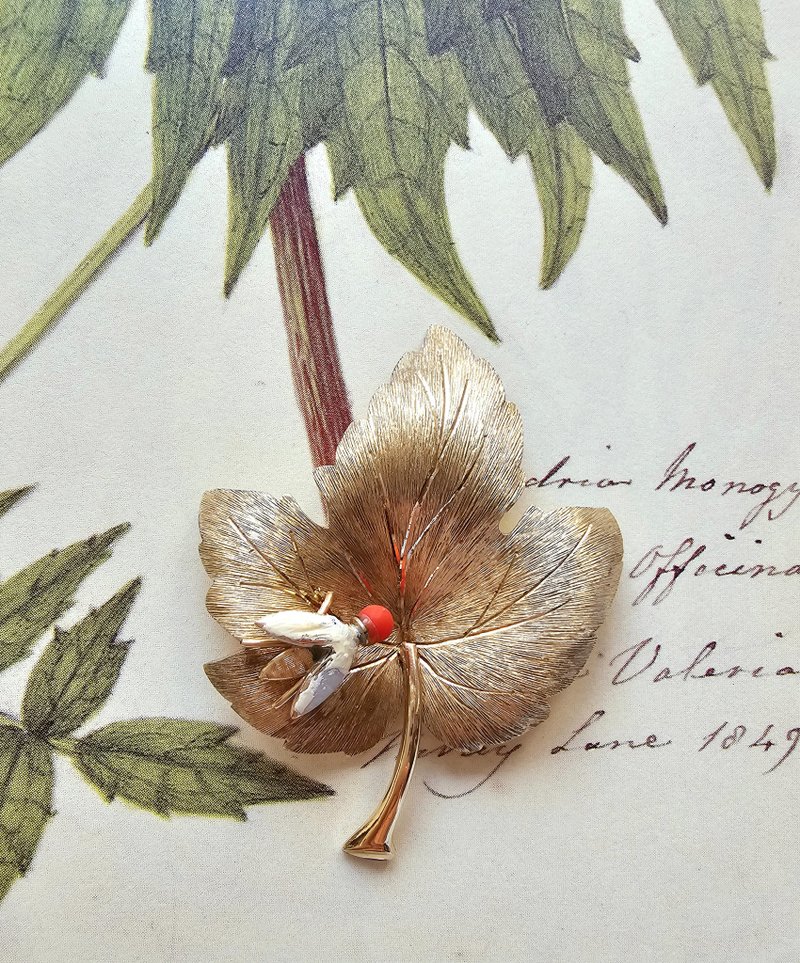 dria Monogy
Officina
Valeria
Lane 1849